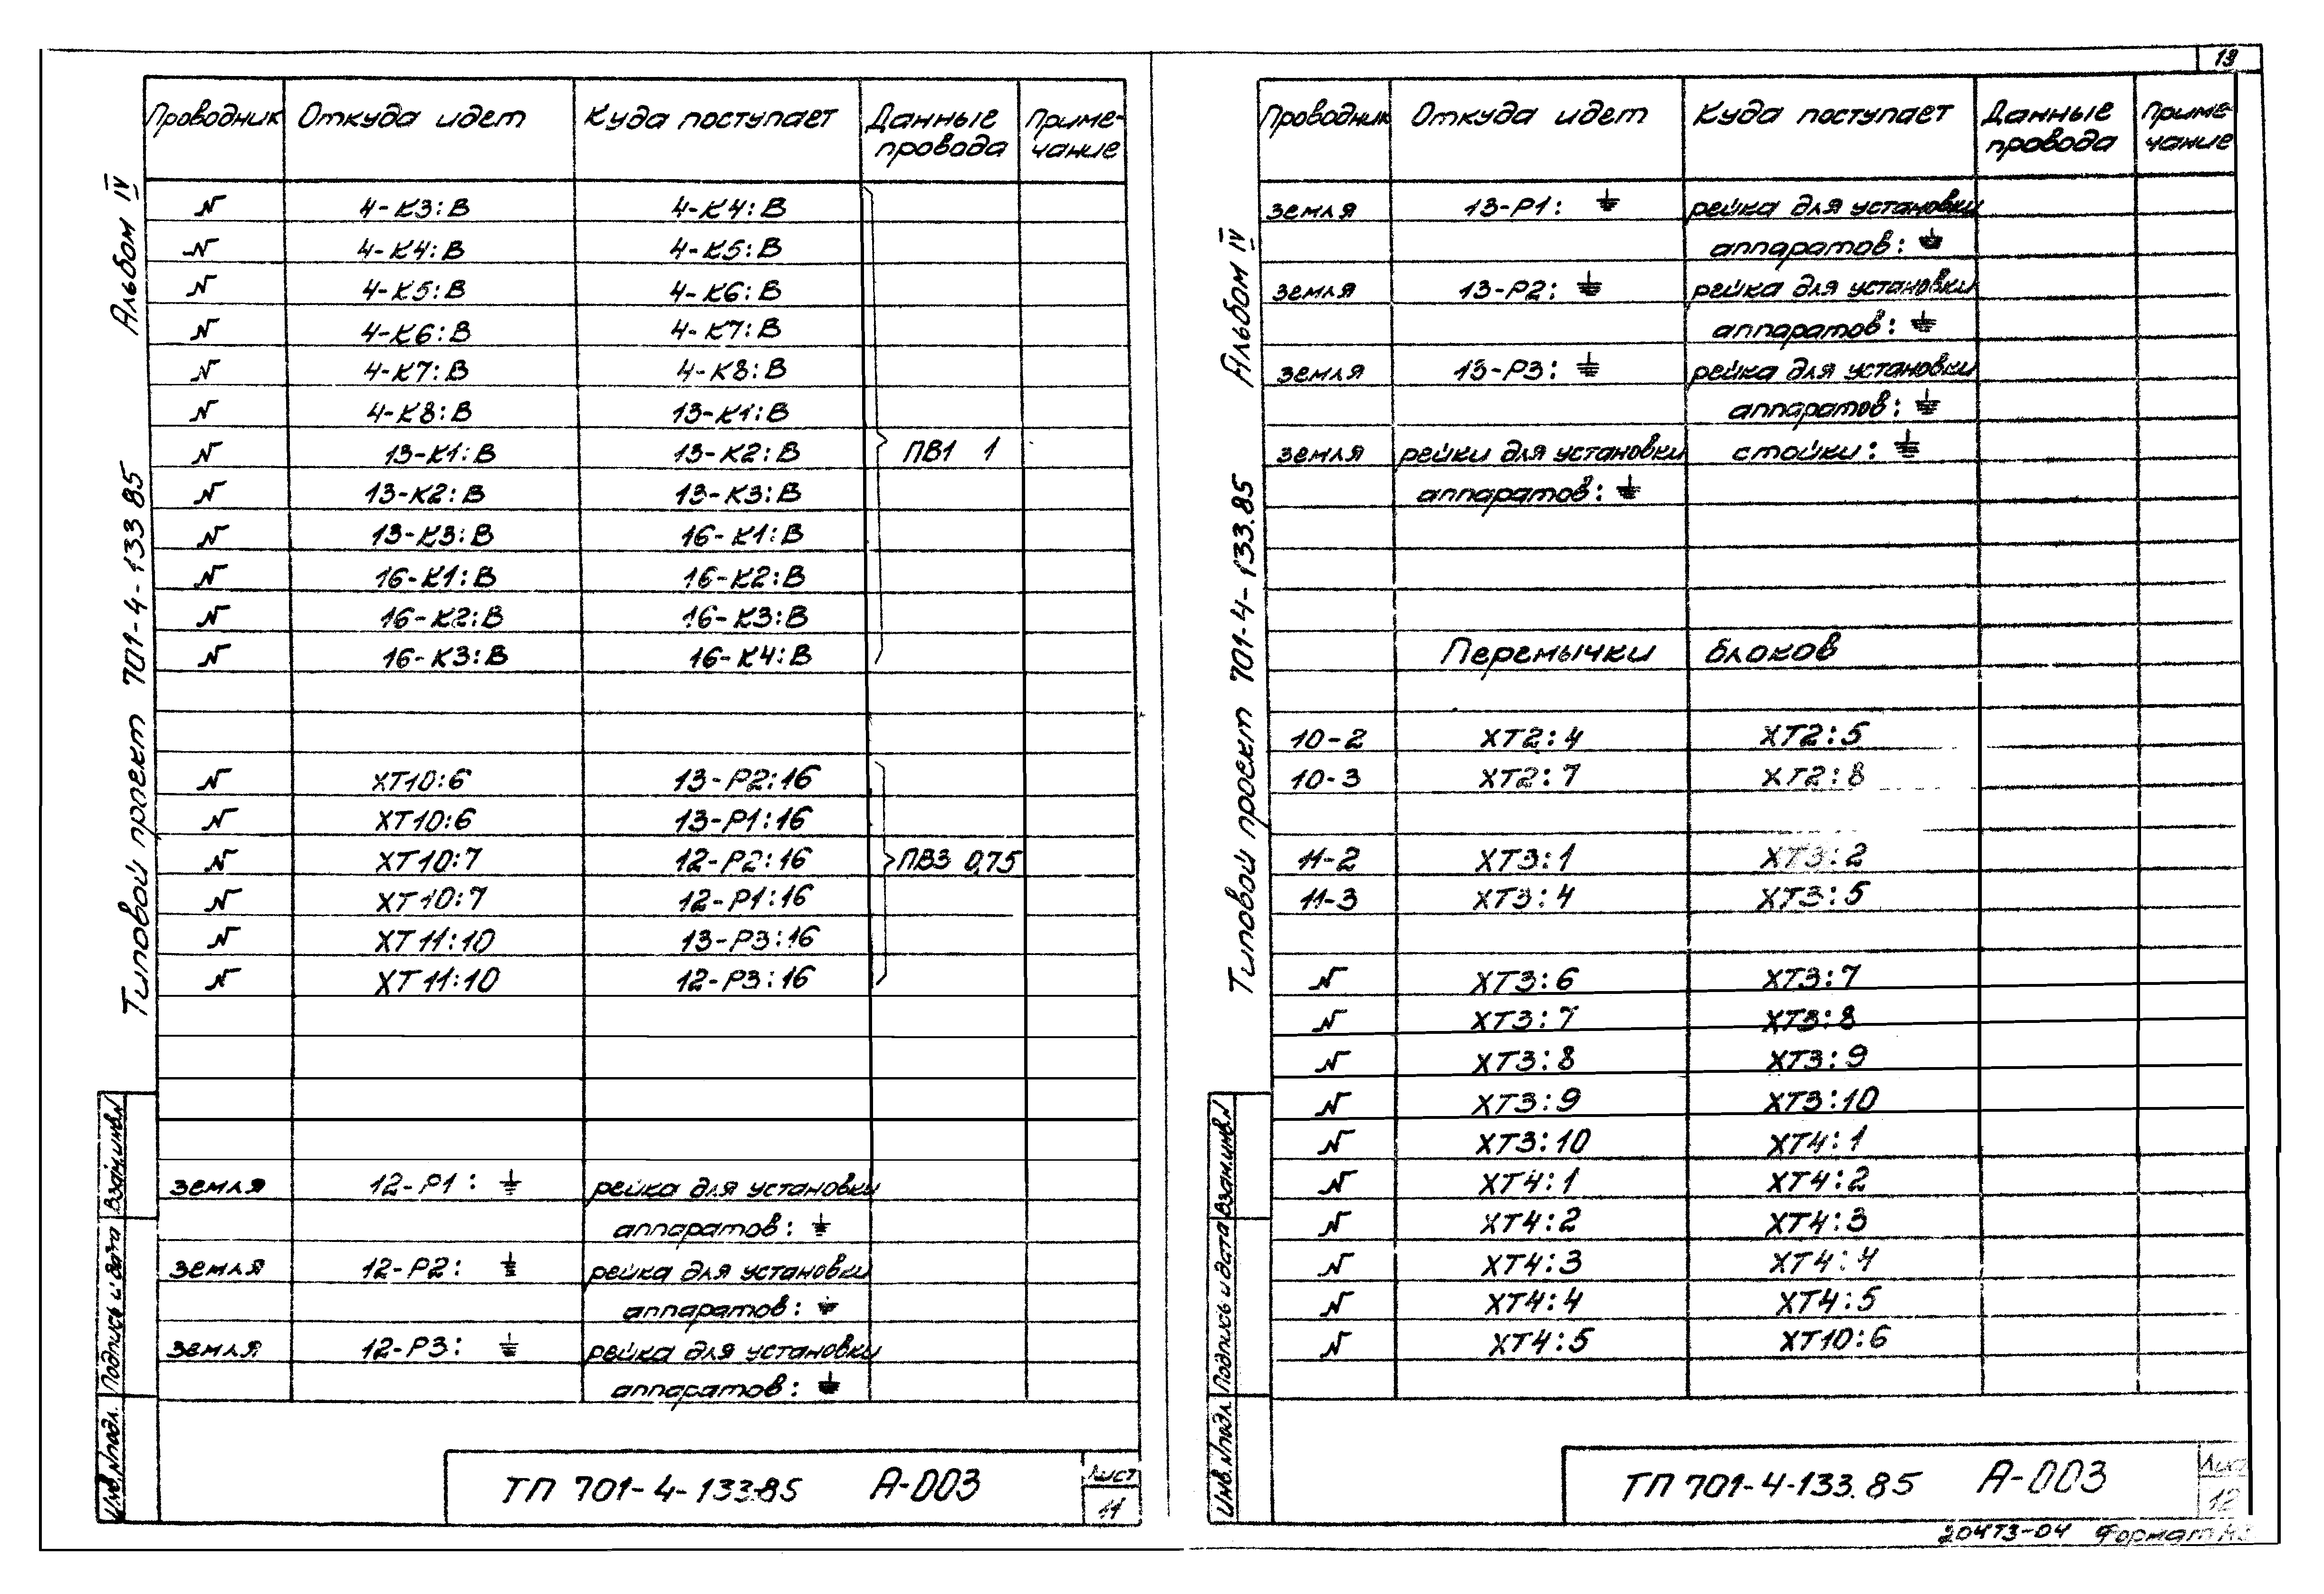 13
Альбом IV
Типовой проект 701-4-133 85
Проводник Откуда идет Куда поступает Данные провода Приме-чание
N 4-К3:В 4-К4:В
N 4-К4:В 4-К5:В
N 4-К5:В 4-К6:В
N 4-К6:В 4-К7:В
N 4-К7:В 4-К8:В
N 4-К8:В 13-К1:В
N 13-К1:В 13-К2:В ПВ1 1
N 13-К2:В 13-К3:В
N 13-К3:В 16-К1:В
N 16-К1:В 16-К2:В
N 16-К2:В 16-К3:В
N 16-К3:В 16-К4:В
N ХТ10:6 13-Р2:16
N ХТ10:6 13-Р1:16
N ХТ10:7 12-Р2:16 ПВ3 0,75
N ХТ10:7 12-Р1:16
N ХТ11:10 13-Р3:16
N ХТ11:10 12-Р3:16
земля 12-Р1: ⏚ рейка для установки
аппаратов: ⏚
земля 12-Р2: ⏚ рейка для установки
аппаратов: ⏚
земля 12-Р3: ⏚ рейка для установки
аппаратов: ⏚
Инв.N подл. Подпись и дата Взам.инв.N
ТП 701-4-133.85 А-003 Лист
11
Альбом IV
Типовой проект 701-4-133.85
Проводник Откуда идет Куда поступает Данные провода Приме-чание
земля 13-Р1: ⏚ рейка для установки
аппаратов: ⏚
земля 13-Р2: ⏚ рейка для установки
аппаратов: ⏚
земля 13-Р3: ⏚ рейка для установки
аппаратов: ⏚
земля рейки для установки стойки: ⏚
аппаратов: ⏚
Перемычки блоков
10-2 ХТ2:4 ХТ2:5
10-3 ХТ2:7 ХТ2:8
11-2 ХТ3:1 ХТ3:2
11-3 ХТ3:4 ХТ3:5
N ХТ3:6 ХТ3:7
N ХТ3:7 ХТ3:8
N ХТ3:8 ХТ3:9
N ХТ3:9 ХТ3:10
N ХТ3:10 ХТ4:1
N ХТ4:1 ХТ4:2
N ХТ4:2 ХТ4:3
N ХТ4:3 ХТ4:4
N ХТ4:4 ХТ4:5
N ХТ4:5 ХТ10:6
Инв.N подл. Подпись и дата Взам.инв.N
ТП 701-4-133.85 А-003 Лист
12
20473-04 Формат